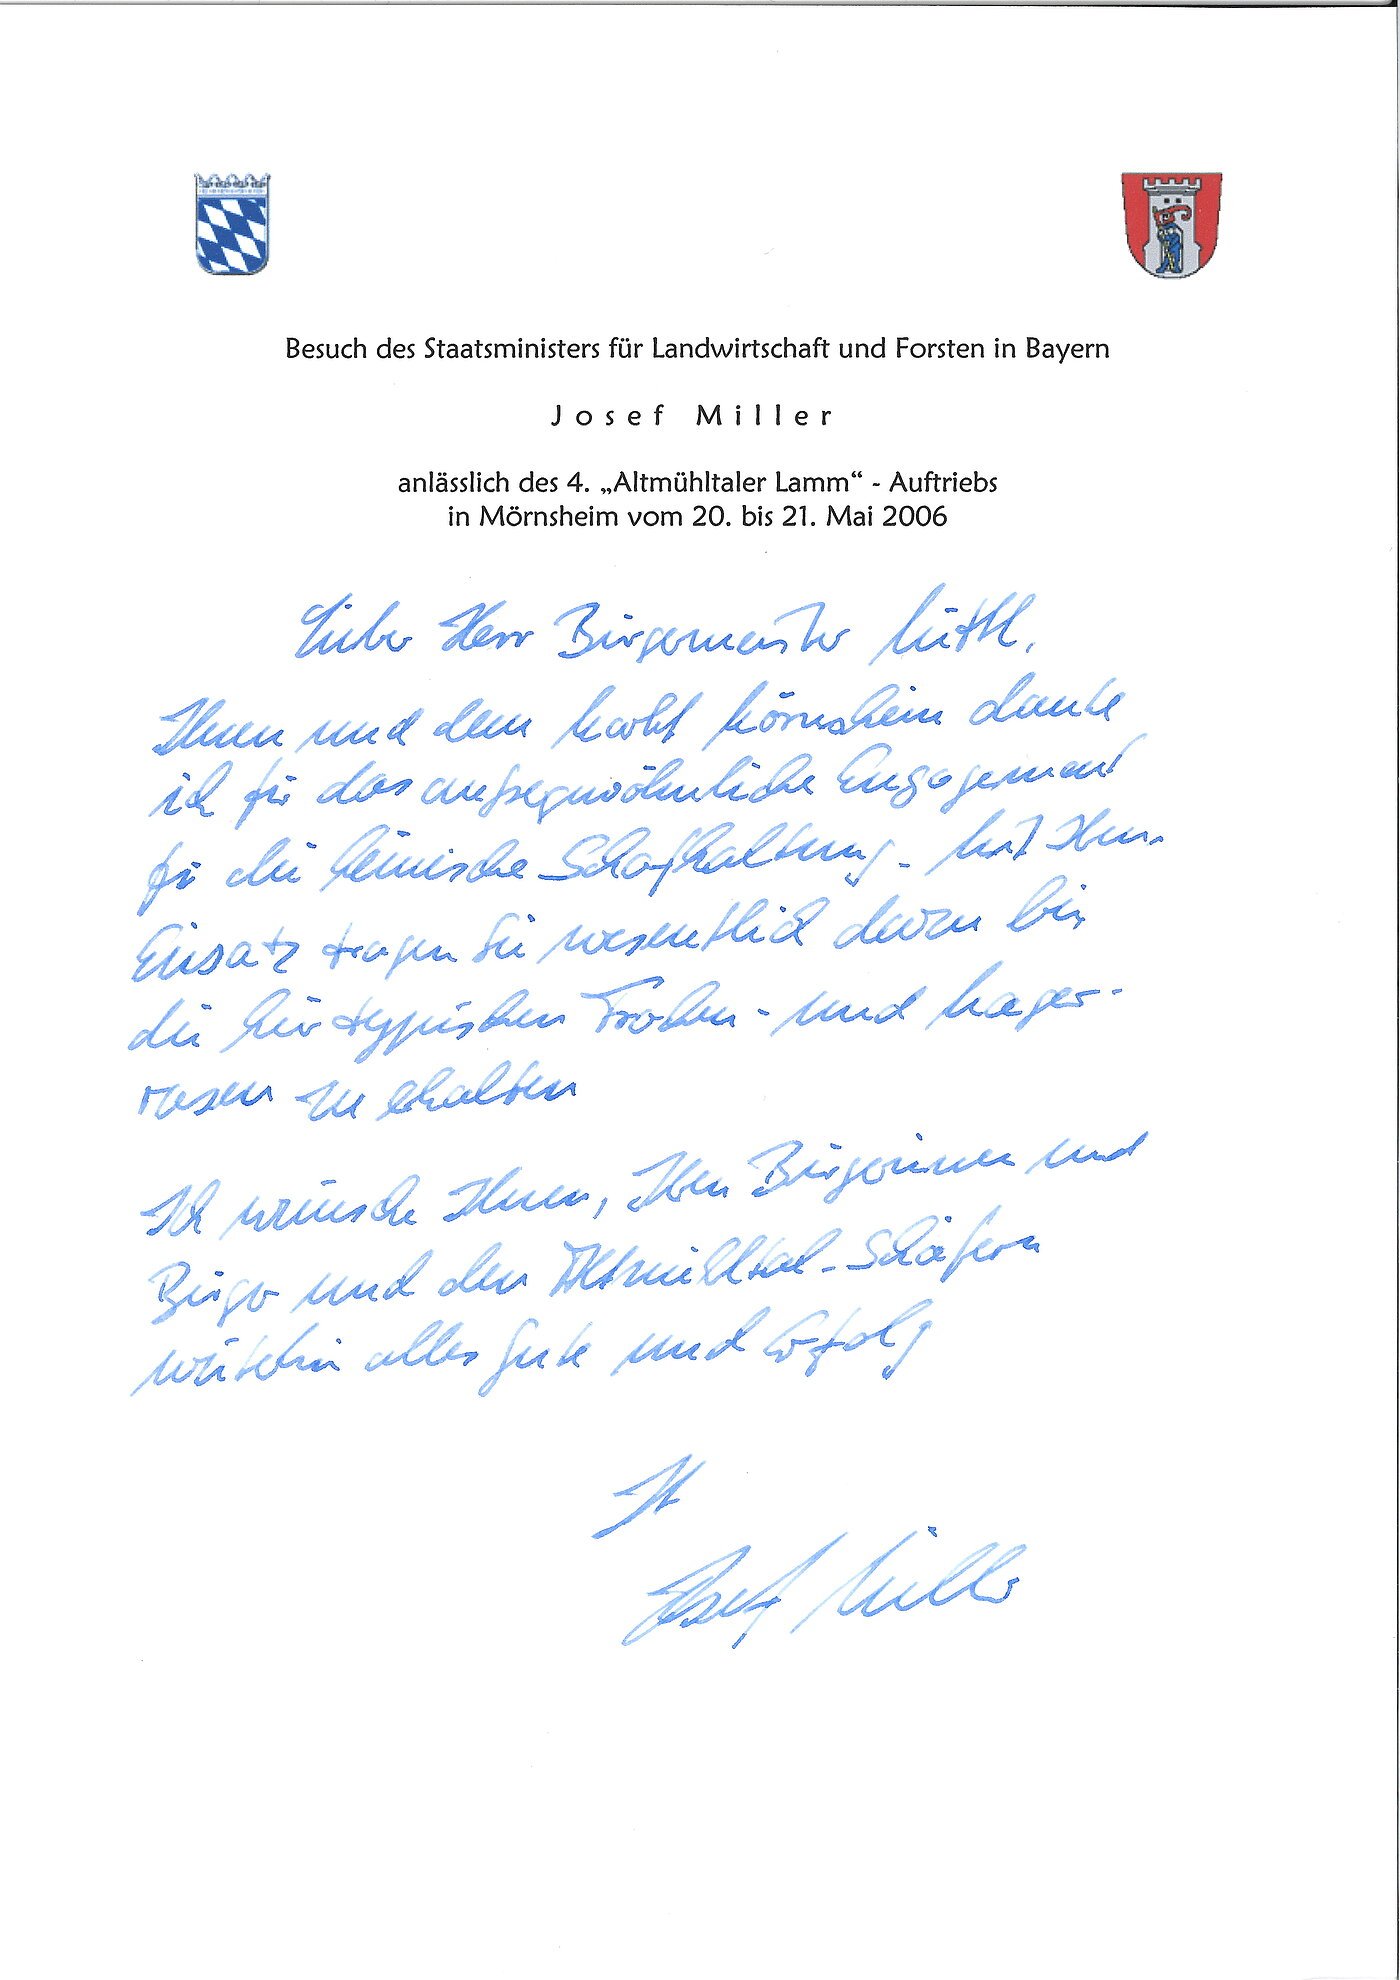 Besuch des Staatsministers für Landwirtschaft und Forsten in Bayern
Josef Miller
anlässlich des 4. „Altmühltaler Lamm“ - Auftriebs
in Mörnsheim vom 20. bis 21. Mai 2006
Lieber Herr Bürgermeister
Ihnen und dem Markt Mörnsheim danke
ich für das außergewöhnliche Engagement
für die heimische Schafhaltung. Mit Ihrem
Einsatz tragen Sie wesentlich dazu bei,
die hier typischen Trocken- und Mager-
rasen zu erhalten
Ich wünsche Ihnen, Ihren Bürgerinnen und
Bürger und den Altmühltal-Schäfern
weiterhin alles Gute und Erfolg
Ihr
Josef Miller